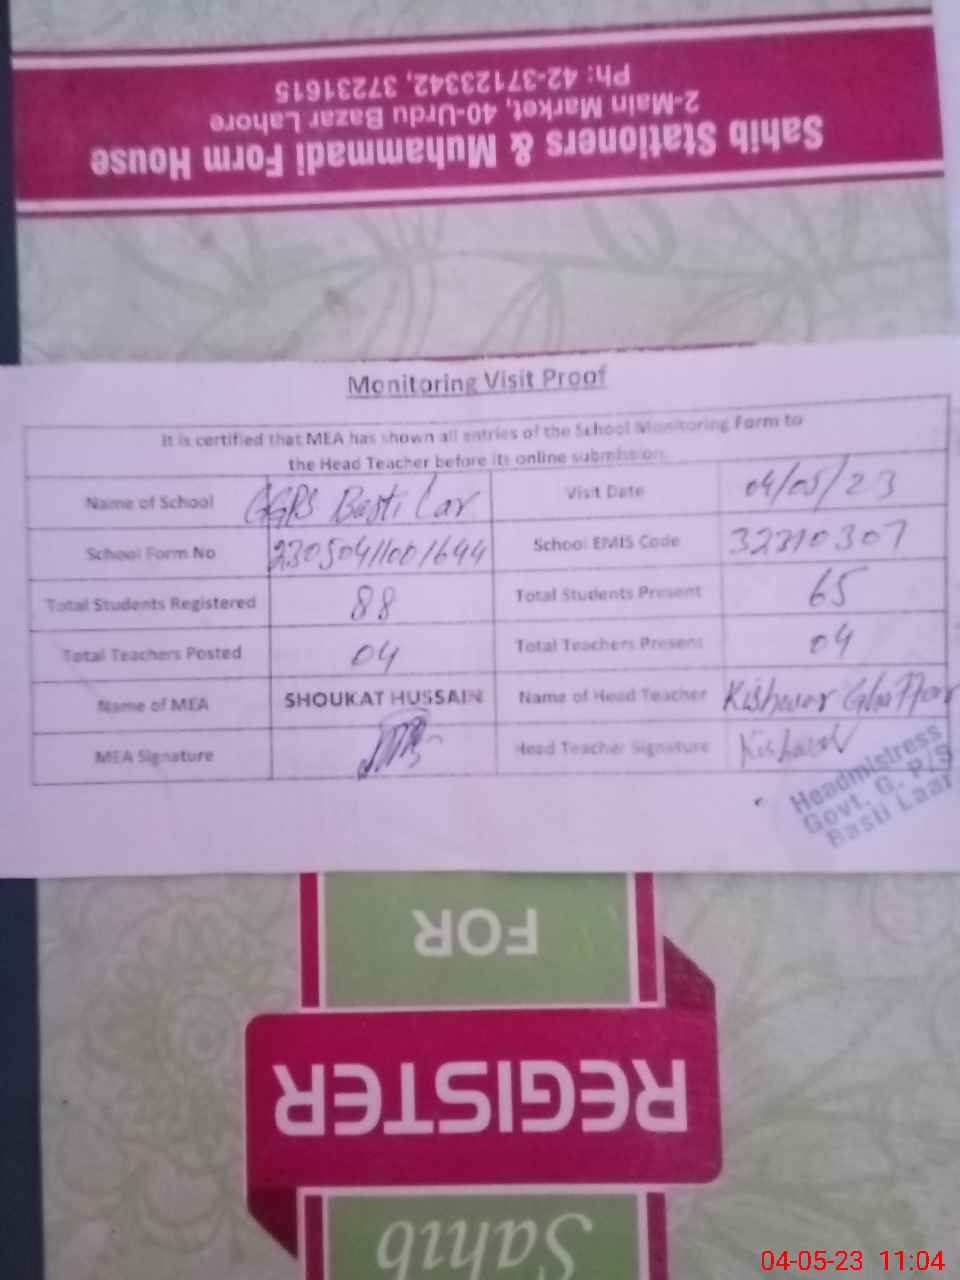 Sahib Stationers & Muhammadi Form House
2-Main Market, 40-Urdu Bazar Lahore
Ph: 42-37123342, 37231615
Monitoring Visit Proof
It is certified that MEA has shown all entries of the School Monitoring Form to
the Head Teacher before its online submission.
Name of School GGPS Basti Lar Visit Date 04/05/23
School Form No 2305041001644 School EMIS Code 32310307
Total Students Registered 88 Total Students Present 65
Total Teachers Posted 04 Total Teachers Present 04
Name of MEA SHOUKAT HUSSAIN Name of Head Teacher Kishwar Ghaffar
MEA Signature Head Teacher Signature Kishwar
Headmistress
Govt. G. P/S
Basti Laar
FOR
REGISTER
Sahib
04-05-23 11:04